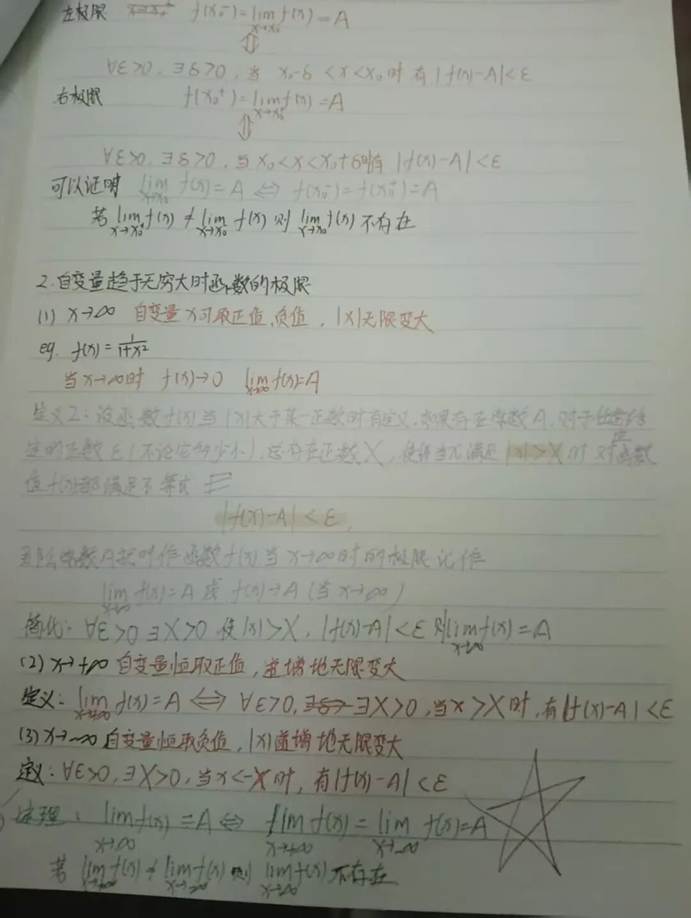 左极限 f(x₀⁻)=lim f(x)=A
x→x₀⁻
⇕
∀ε>0,∃δ>0,当 x₀-δ<x<x₀时 有|f(x)-A|<ε
右极限 f(x₀⁺)=lim f(x)=A
x→x₀⁺
⇕
∀ε>0,∃δ>0,当x₀<x<x₀+δ时有 |f(x)-A|<ε
可以证明 lim f(x)=A ⇔ f(x₀⁻)=f(x₀⁺)=A
x→x₀
若 lim f(x) ≠ lim f(x) 则 lim f(x) 不存在
x→x₀⁺ x→x₀⁻ x→x₀
2.自变量趋于无穷大时函数的极限
(1) x→∞ 自变量x可取正值,负值,|x|无限变大
eg. f(x)=1/(1+x²)
当x→∞时 f(x)→0 lim f(x)=A
x→∞
定义2:设函数f(x)当|x|大于某一正数时有定义,如果存在常数A,对于任意给
定的正数ε(不论它多少小),总存在正数X,使得当x满足|x|>X时 对应函数
值f(x)都满足不等式
|f(x)-A|<ε,
那么常数A就叫作函数f(x)当x→∞时的极限 记作
lim f(x)=A 或 f(x)→A(当x→∞)
x→∞
简化:∀ε>0 ∃X>0 使|x|>X,|f(x)-A|<ε 则lim f(x)=A
x→∞
(2) x→+∞ 自变量恒取正值,递增地无限变大
定义:lim f(x)=A ⇔ ∀ε>0,∃X>0,当x>X时,有|f(x)-A|<ε
x→+∞
(3) x→-∞ 自变量恒取负值,|x|递增地无限变大
定义:∀ε>0,∃X>0,当x<-X时,有|f(x)-A|<ε
定理:lim f(x)=A ⇔ lim f(x)=lim f(x)=A
x→∞ x→+∞ x→-∞
若 lim f(x) ≠ lim f(x) 则 lim f(x) 不存在
x→+∞ x→-∞ x→∞